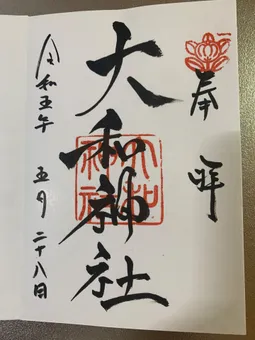 奉拝
大和神社
大和神社
令和五年 五月二十八日